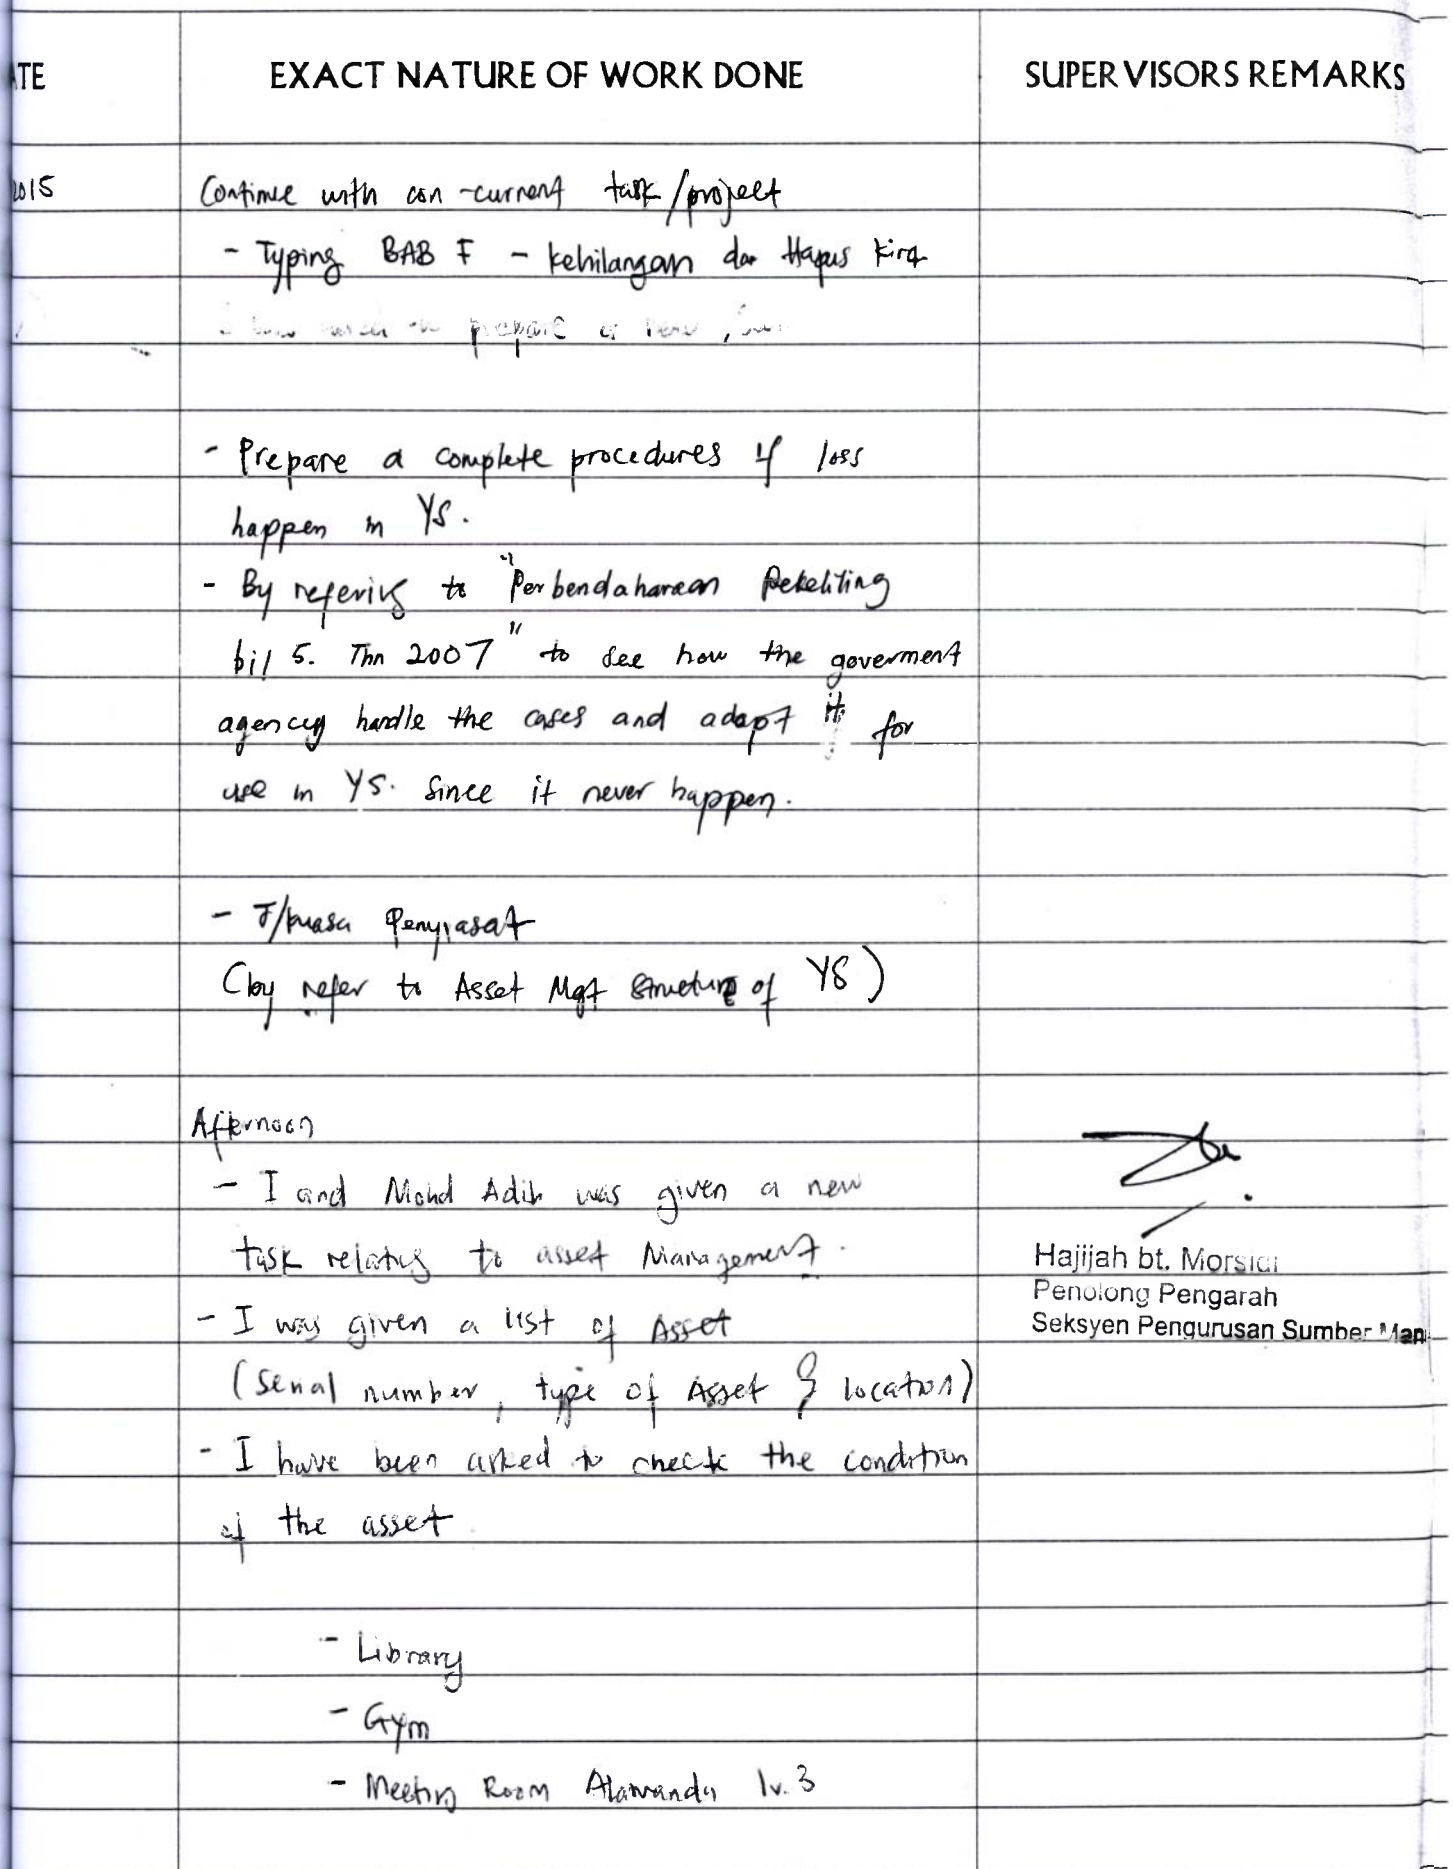 ATE EXACT NATURE OF WORK DONE SUPERVISORS REMARKS
2015 Continue with con-current task/project
- Typing BAB F - kehilangan dan Hapus kira
prepare a new
- Prepare a complete procedures if loss
happen in YS.
- By refering to "Perbendaharaan Pekeliling
bil 5. Thn 2007" to see how the goverment
agency handle the cases and adapt it for
use in YS. Since it never happen.
- J/kuasa Penyiasat
(by refer to Asset Mgt Structure of YS)
Afternoon
- I and Mohd Adib was given a new
task relating to asset Management.
- I was given a list of Asset
(Serial number, type of Asset & location)
- I have been asked to check the condition
of the asset
- Library
- Gym
- Meeting Room Alamanda lv. 3
Hajijah bt. Morsidi
Penolong Pengarah
Seksyen Pengurusan Sumber Man